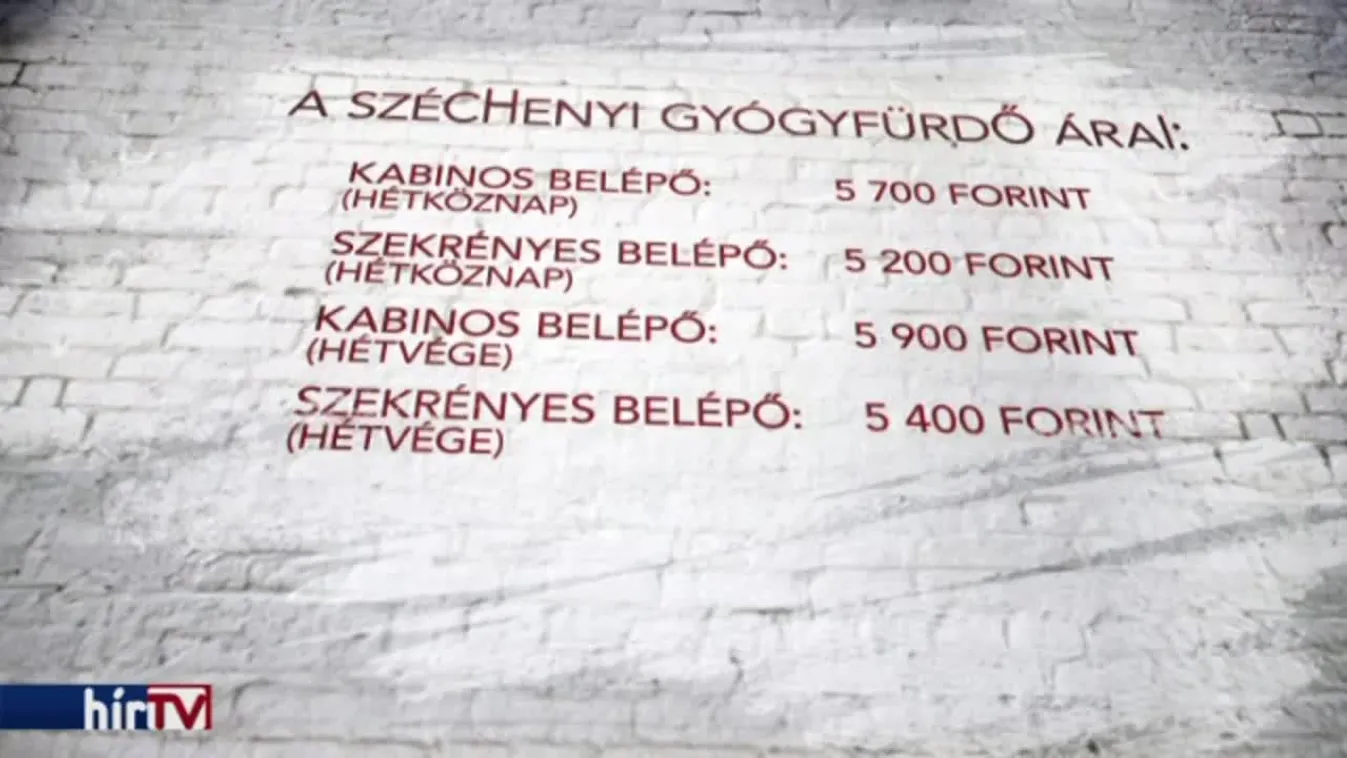 A SZÉCHENYI GYÓGYFÜRDŐ ÁRAI:
KABINOS BELÉPŐ: 5 700 FORINT
(HÉTKÖZNAP)
SZEKRÉNYES BELÉPŐ: 5 200 FORINT
(HÉTKÖZNAP)
KABINOS BELÉPŐ: 5 900 FORINT
(HÉTVÉGE)
SZEKRÉNYES BELÉPŐ: 5 400 FORINT
(HÉTVÉGE)
hírTV